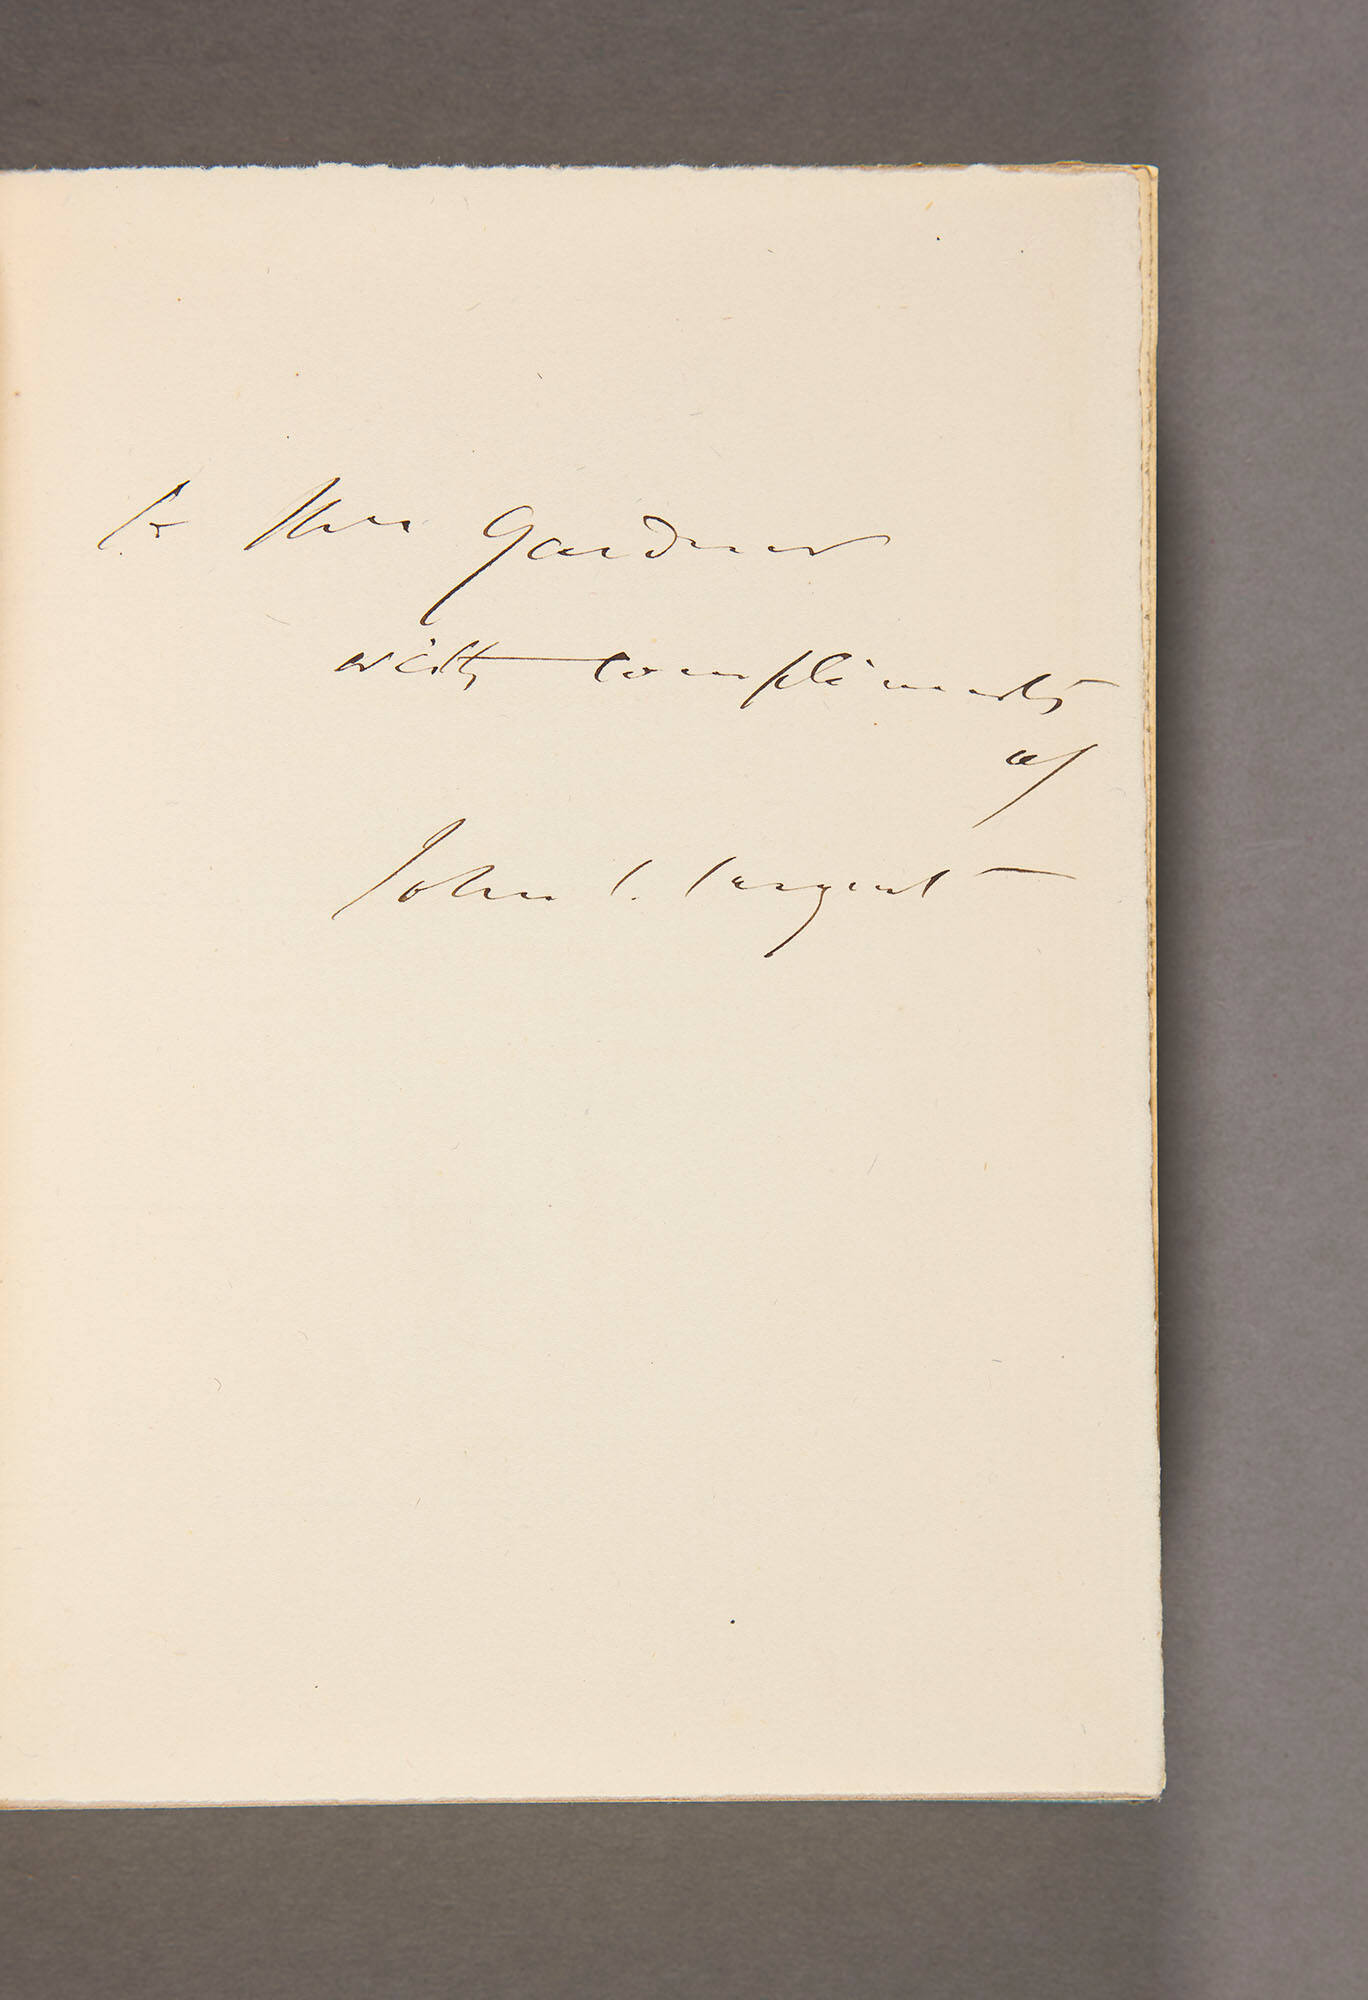 to Mrs Gardner
with compliments
of
John S. Sargent